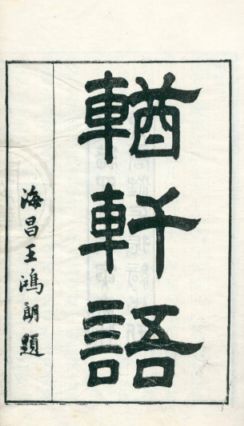 輶軒語
海昌王鴻朗題